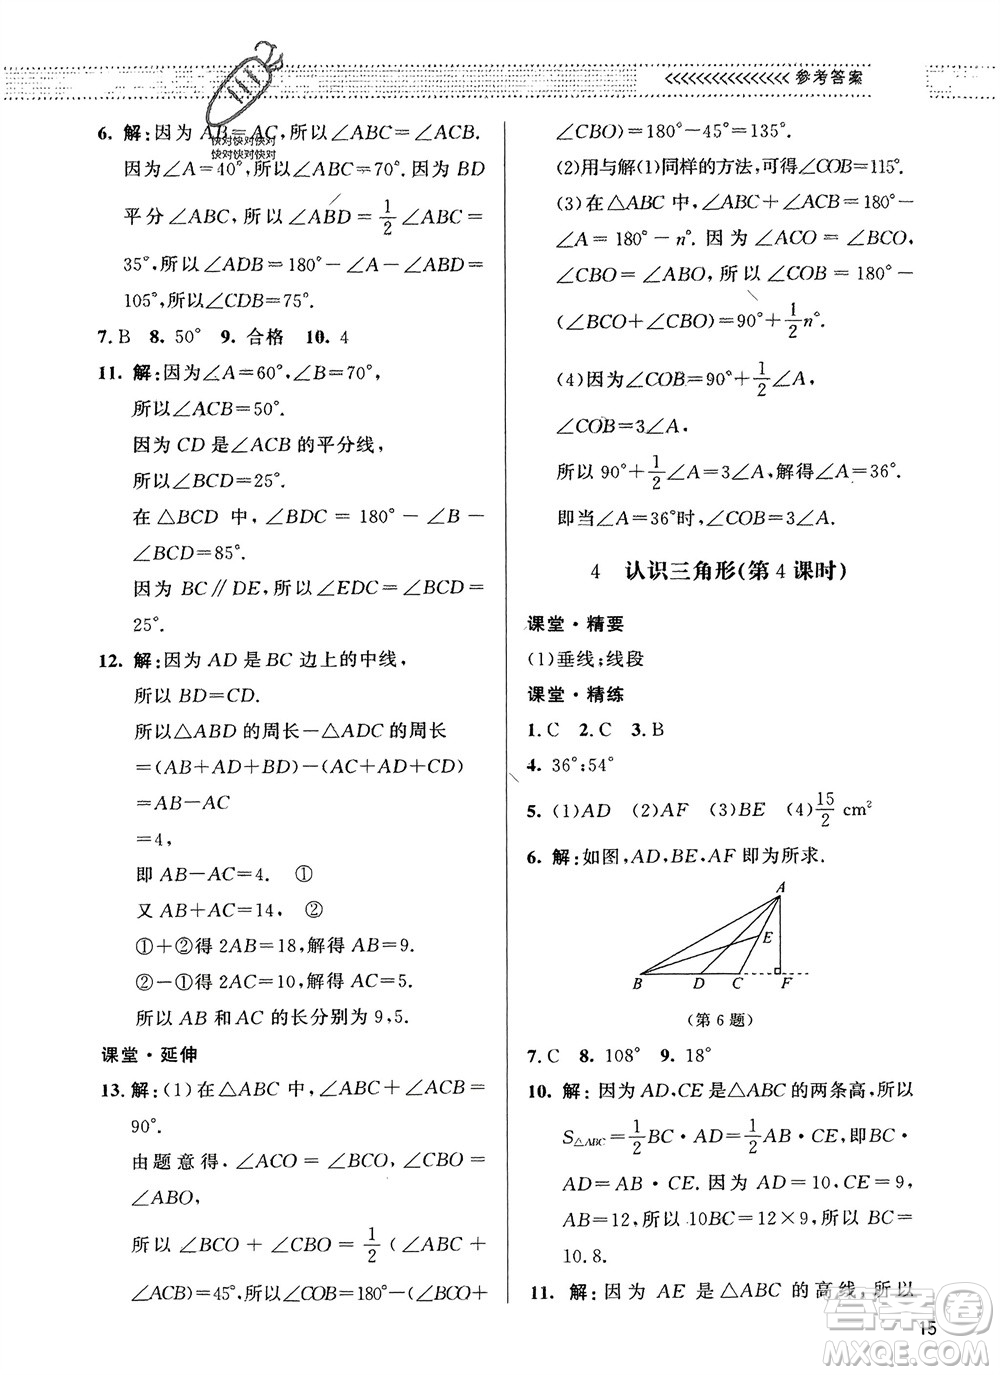 参考答案
6. 解:因为AB=AC,所以∠ABC=∠ACB.
快对快对快对
快对快对快对
因为∠A=40°,所以∠ABC=70°.因为BD
平分∠ABC,所以∠ABD=1/2∠ABC=
35°,所以∠ADB=180°-∠A-∠ABD=
105°,所以∠CDB=75°.
7. B 8. 50° 9. 合格 10. 4
11. 解:因为∠A=60°,∠B=70°,
所以∠ACB=50°.
因为CD是∠ACB的平分线,
所以∠BCD=25°.
在△BCD中,∠BDC=180°-∠B-
∠BCD=85°.
因为BC∥DE,所以∠EDC=∠BCD=
25°.
12. 解:因为AD是BC边上的中线,
所以BD=CD.
所以△ABD的周长-△ADC的周长
=(AB+AD+BD)-(AC+AD+CD)
=AB-AC
=4,
即AB-AC=4. ①
又AB+AC=14, ②
①+②得2AB=18,解得AB=9.
②-①得2AC=10,解得AC=5.
所以AB和AC的长分别为9,5.
课堂·延伸
13. 解:(1)在△ABC中,∠ABC+∠ACB=
90°.
由题意得,∠ACO=∠BCO,∠CBO=
∠ABO,
所以∠BCO+∠CBO=1/2(∠ABC+
∠ACB)=45°,所以∠COB=180°-(∠BCO+
∠CBO)=180°-45°=135°.
(2)用与解(1)同样的方法,可得∠COB=115°.
(3)在△ABC中,∠ABC+∠ACB=180°-
∠A=180°-n°.因为∠ACO=∠BCO,
∠CBO=∠ABO,所以∠COB=180°-
(∠BCO+∠CBO)=90°+1/2n°.
(4)因为∠COB=90°+1/2∠A,
∠COB=3∠A,
所以90°+1/2∠A=3∠A,解得∠A=36°.
即当∠A=36°时,∠COB=3∠A.
4 认识三角形(第4课时)
课堂·精要
(1)垂线;线段
课堂·精练
1. C 2. C 3. B
4. 36°;54°
5. (1)AD (2)AF (3)BE (4)15/2 cm²
6. 解:如图,AD,BE,AF即为所求.
A
E
B D C F
(第6题)
7. C 8. 108° 9. 18°
10. 解:因为AD,CE是△ABC的两条高,所以
S△ABC=1/2BC·AD=1/2AB·CE,即BC·
AD=AB·CE.因为AD=10,CE=9,
AB=12,所以10BC=12×9,所以BC=
10.8.
11. 解:因为AE是△ABC的高线,所以
答案圈
15
MXQE.COM